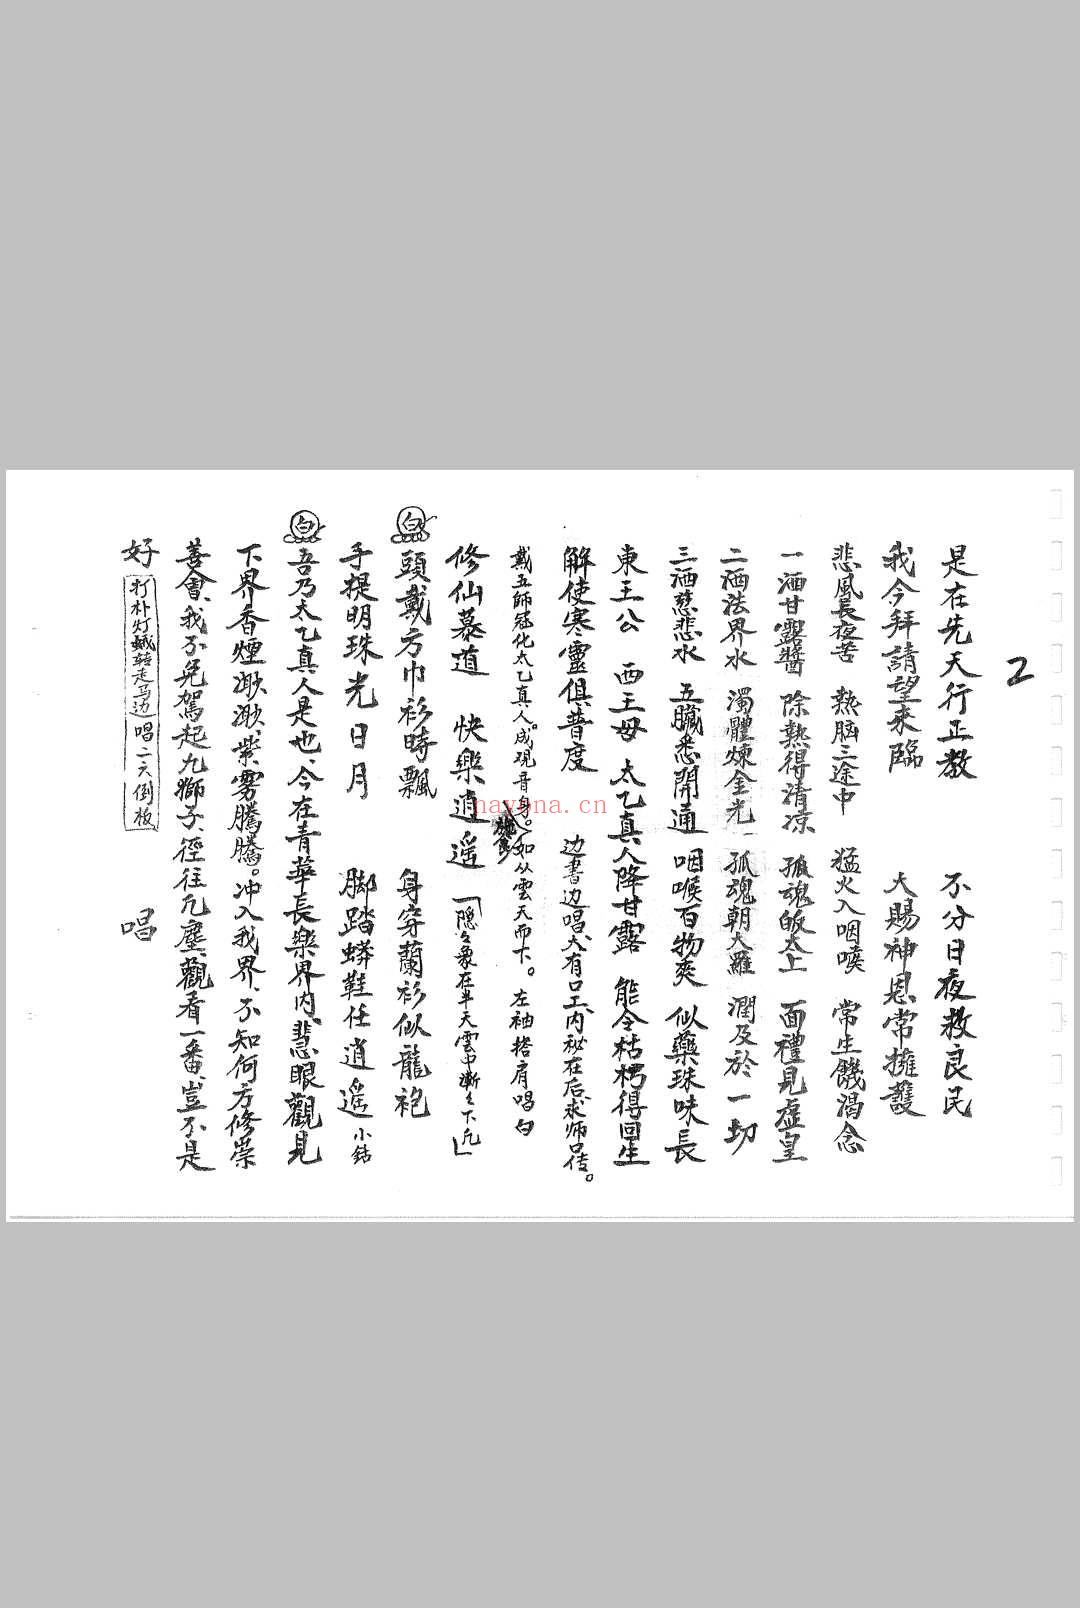 2
是在先天行正教 不分日夜救良民
我今拜請望來臨 大賜神恩常擁護
悲風長夜苦 熱腦三途中 猛火入咽喉 常生饑渴念
一洒甘露醬 除熱得清凉 孤魂皈太上 面禮見虛皇
二洒法界水 濁體煉金光 孤魂朝大羅 潤及於一切
三洒慈悲水 五臟悉開通 咽喉百物爽 似藥珠味長
東王公 西王母 太乙真人降甘露 能令枯朽得回生
解使寒靈俱普度 边書边唱大、有口工、内秘在后、求師口传。
戴五師冠化太乙真人。成观音身。如从雲天而下。左袖搭肩唱白
修仙慕道 快樂逍遥「隐々象在半天雲中漸々下凡」
白 頭戴方巾衫時飄 身穿蘭衫似龍袍
手提明珠光日月 脚踏蟒鞋任逍遥 小鈷
白 吾乃太乙真人是也、今在青華長樂界内、慧眼觀見
下界香煙渺渺、紫雾騰騰。冲入我界、不知何方修崇
善會、我不免駕起九獅子、徑往凡塵、觀看一番、豈不是
好 打朴灯蛾转走马边唱二六倒板 唱
nayona.cn